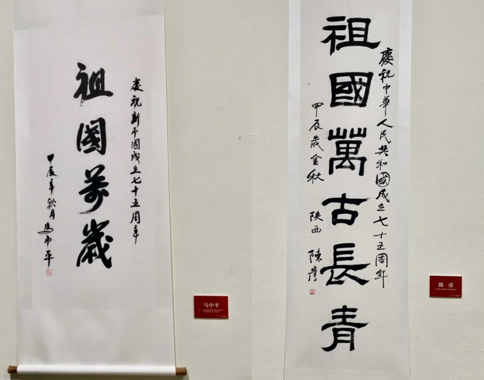 慶祝新中國成立七十五周年
祖國萬歲
甲辰年秋月馬中平
马中平
慶祝中華人民共和國成立七十五周年
祖國萬古長青
甲辰歲金秋 陝西 陳彦
陈彦